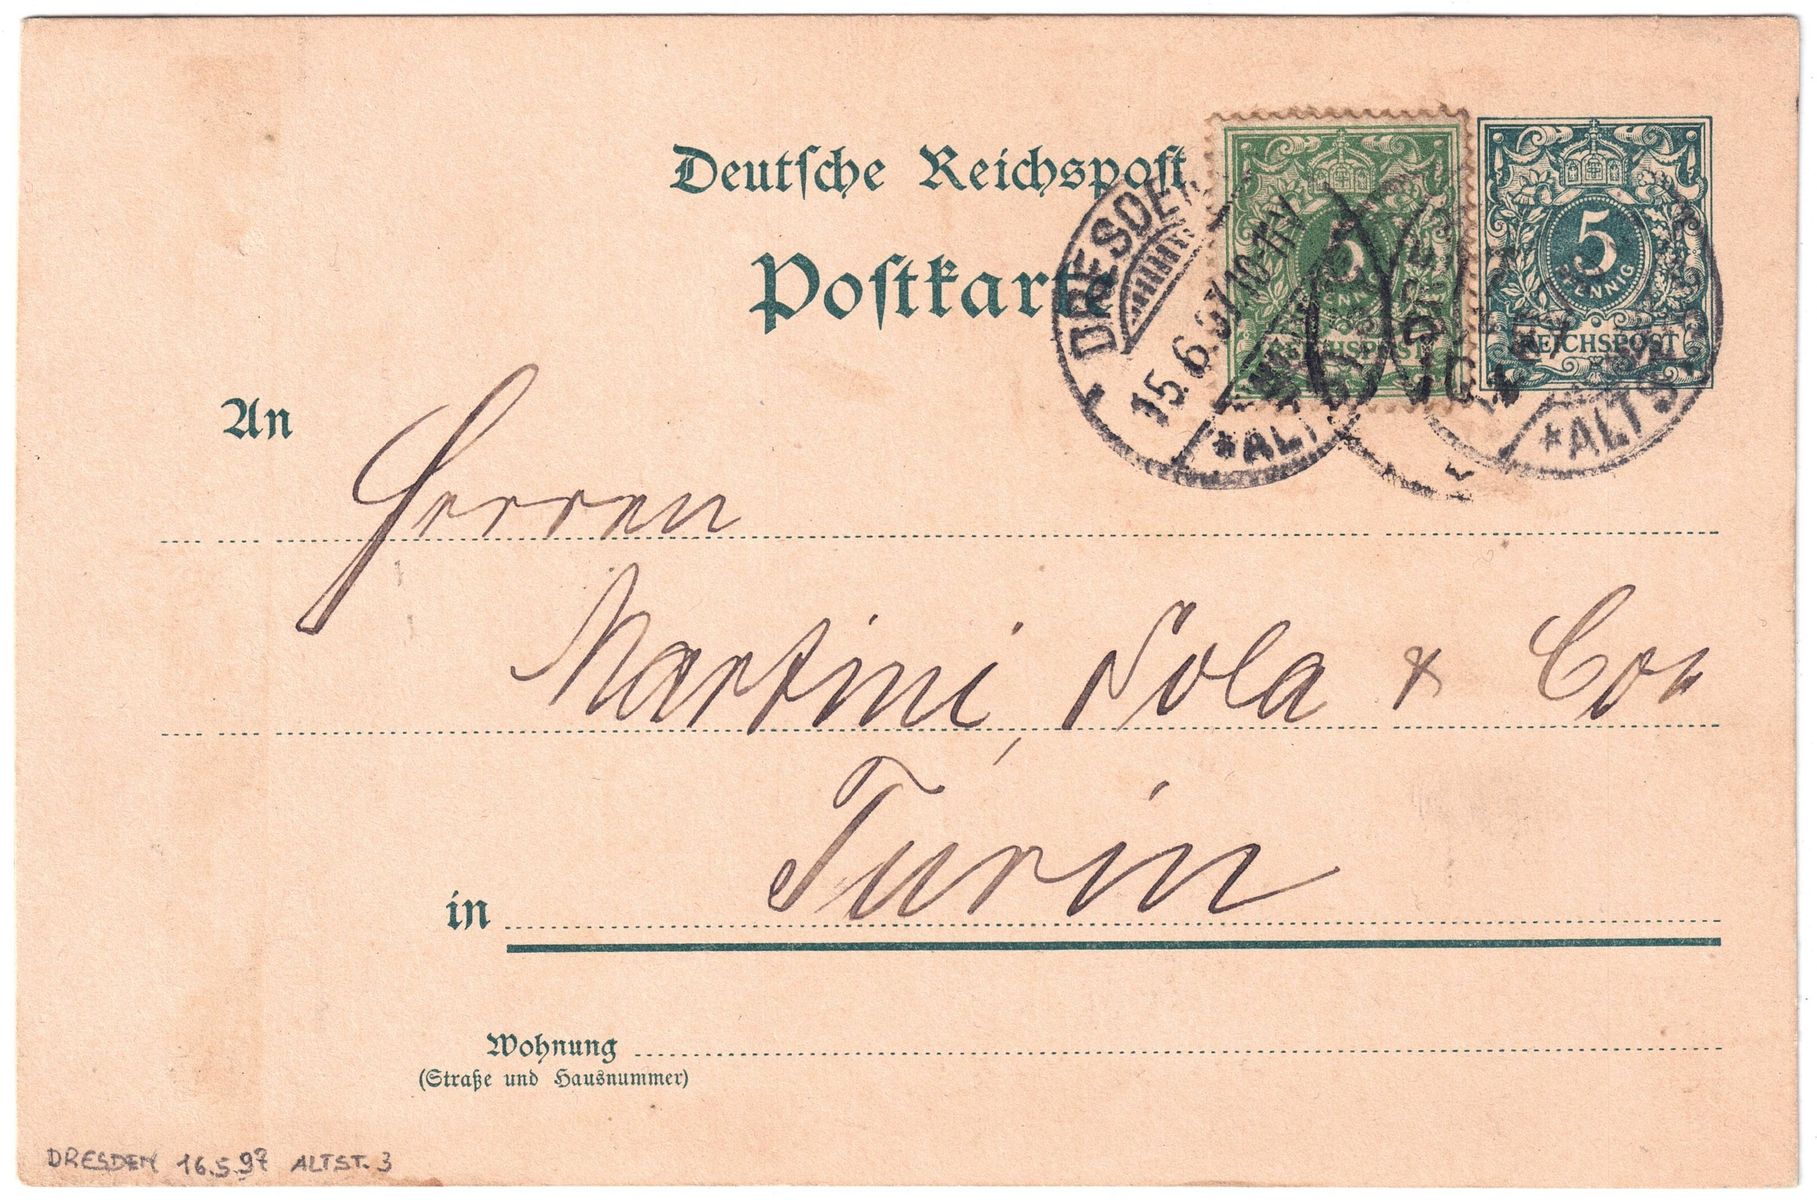 Deutsche Reichspost
Postkarte
5
PFENNIG
REICHSPOST
5
REICHSPOST
DRESDEN
15.6.97 10-11V
*ALTST.
*ALTST.
An
Herren
Martini, Sola & Co
in Turin
Wohnung
(Straße und Hausnummer)
DRESDEN 16.5.97 ALTST. 3